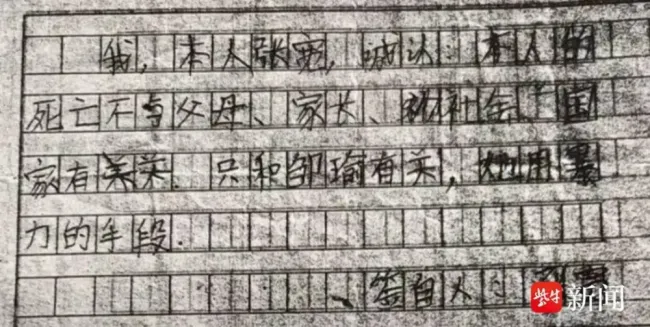 我,本人张宽,诚认:本人的
死亡不与父母、家长、社会、国
家有关.只和邹瑜有关,她用暴
力的手段.
签自人:
紫牛新闻